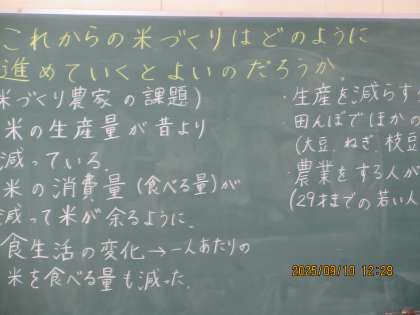 これからの米づくりはどのように
進めていくとよいのだろうか。
米づくり農家の課題)
米の生産量が昔より
減っている。
米の消費量(食べる量)が
減って米が余るように。
食生活の変化→一人あたりの
米を食べる量も減った。
・生産を減らす
田んぼでほかの
(大豆、ねぎ、枝豆
・農業をする人が
(29才までの若い人
2025/09/10 12:28